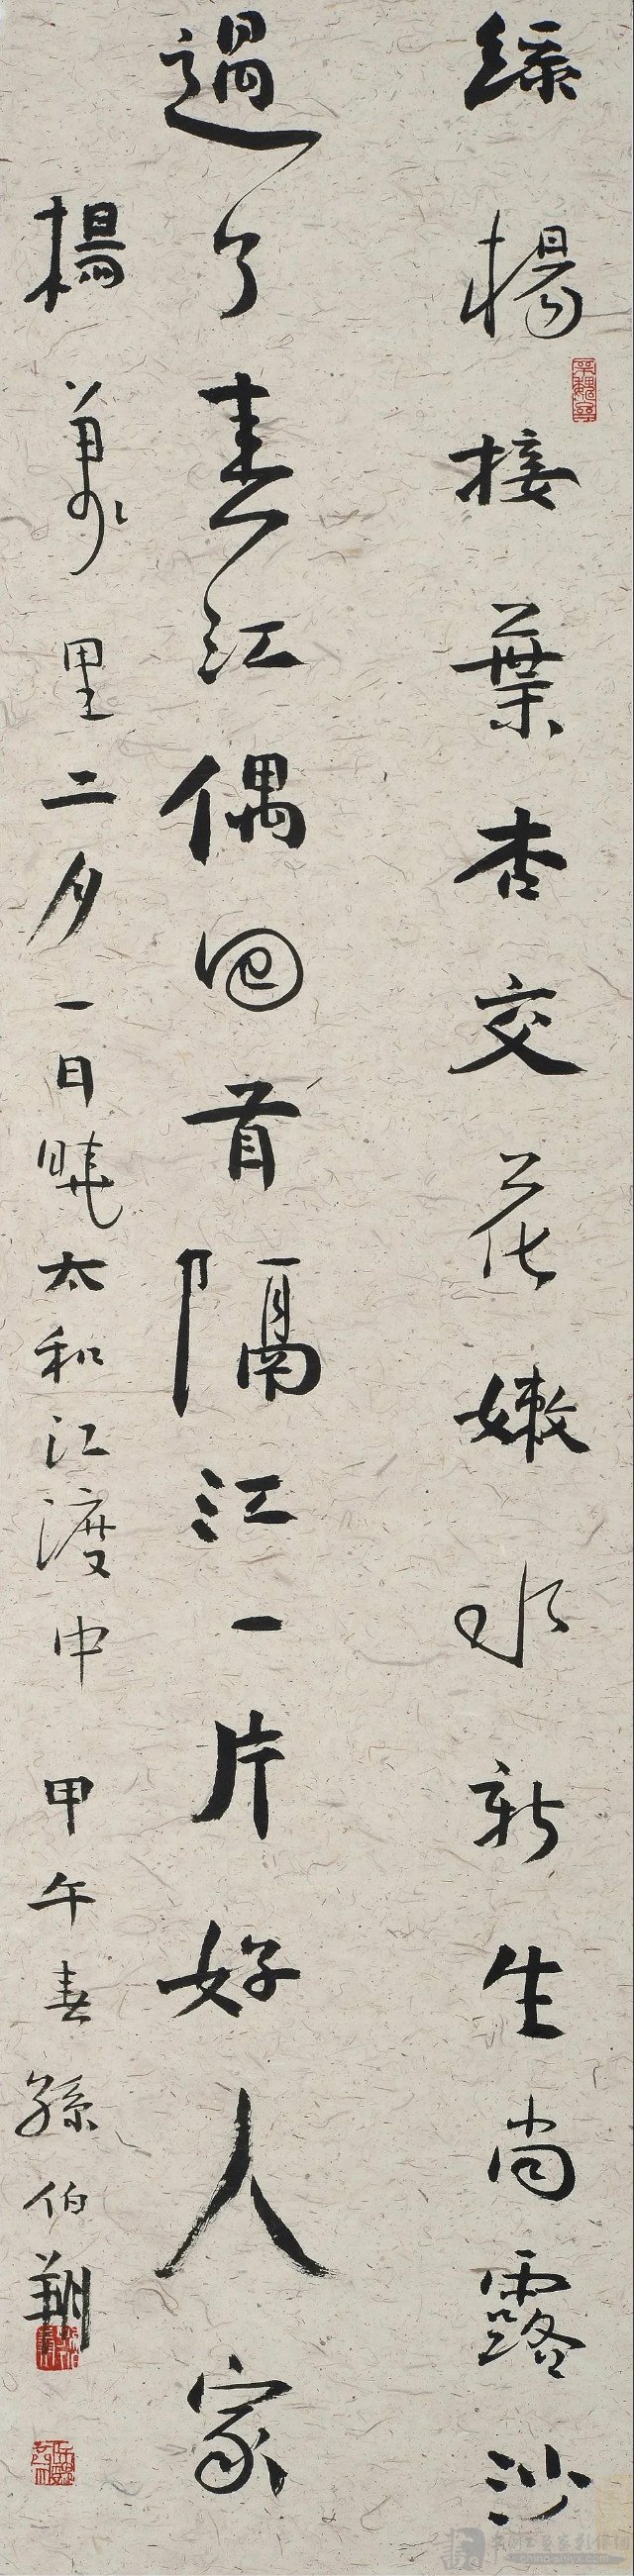 綠楊接葉杏交花嫩水新生尚露沙
過了春江偶回首隔江一片好人家
楊萬里二月一日曉太和江渡中 甲午春 孫伯翔